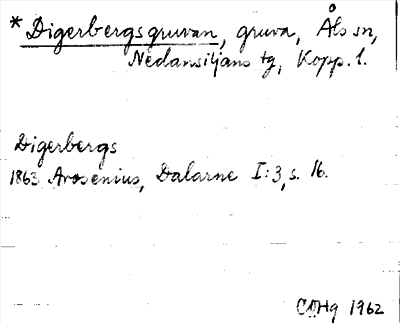 * Digerbergsgruvan, gruva, Åls sn,
Nedansiljans tg, Kopp. l.
Digerbergs
1863 Arosenius, Dalarne I:3, s. 16.
COHg 1962